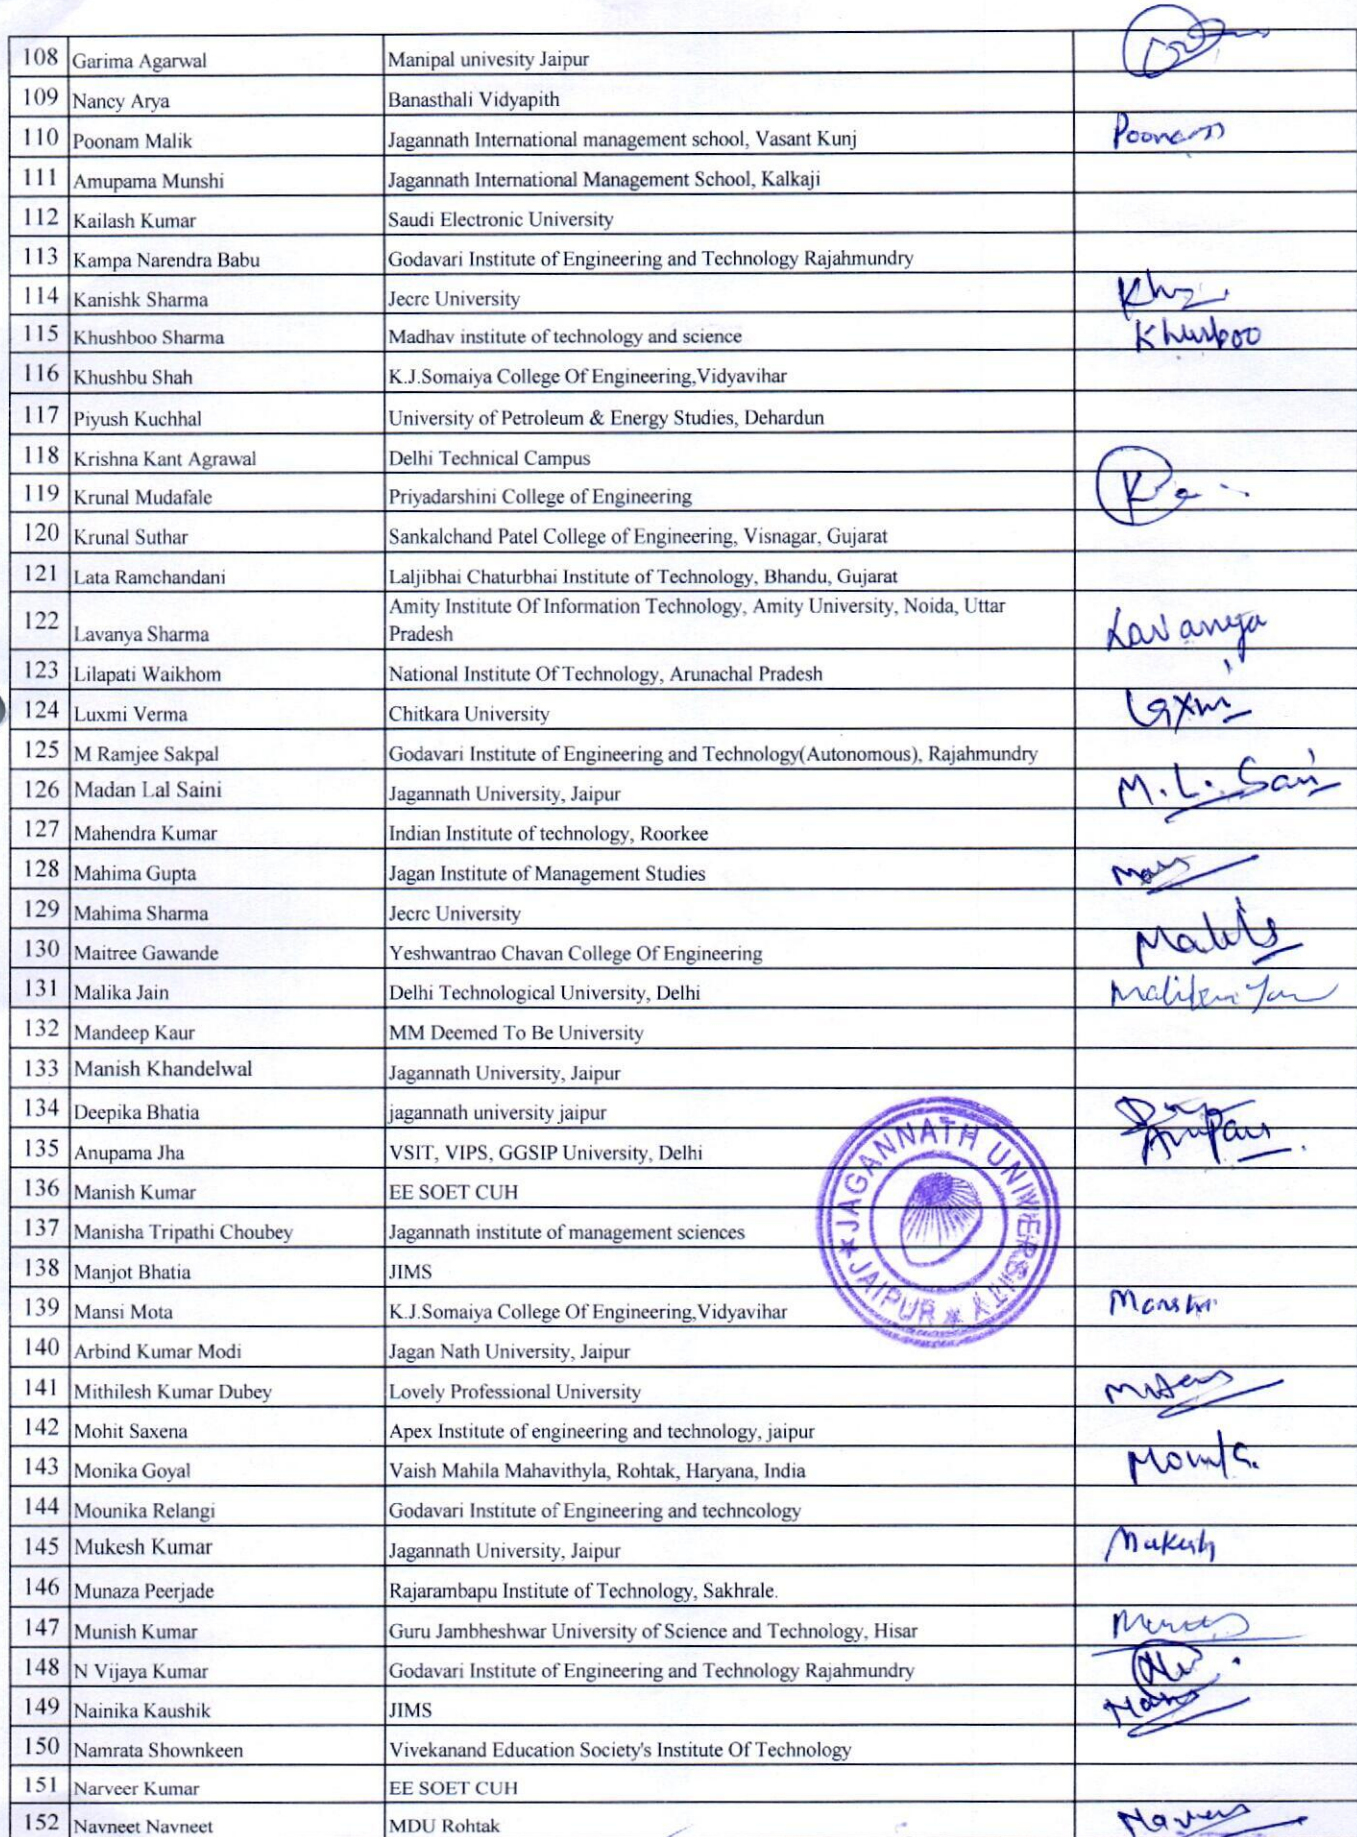 108 Garima Agarwal Manipal univesity Jaipur
109 Nancy Arya Banasthali Vidyapith
110 Poonam Malik Jagannath International management school, Vasant Kunj
111 Amupama Munshi Jagannath International Management School, Kalkaji
112 Kailash Kumar Saudi Electronic University
113 Kampa Narendra Babu Godavari Institute of Engineering and Technology Rajahmundry
114 Kanishk Sharma Jecrc University
115 Khushboo Sharma Madhav institute of technology and science Khusboo
116 Khushbu Shah K.J.Somaiya College Of Engineering,Vidyavihar
117 Piyush Kuchhal University of Petroleum & Energy Studies, Dehardun
118 Krishna Kant Agrawal Delhi Technical Campus
119 Krunal Mudafale Priyadarshini College of Engineering
120 Krunal Suthar Sankalchand Patel College of Engineering, Visnagar, Gujarat
121 Lata Ramchandani Laljibhai Chaturbhai Institute of Technology, Bhandu, Gujarat
122 Lavanya Sharma Amity Institute Of Information Technology, Amity University, Noida, Uttar
Pradesh Lavanya
123 Lilapati Waikhom National Institute Of Technology, Arunachal Pradesh
124 Luxmi Verma Chitkara University Laxmi
125 M Ramjee Sakpal Godavari Institute of Engineering and Technology(Autonomous), Rajahmundry
126 Madan Lal Saini Jagannath University, Jaipur M.L. Saini
127 Mahendra Kumar Indian Institute of technology, Roorkee
128 Mahima Gupta Jagan Institute of Management Studies
129 Mahima Sharma Jecrc University
130 Maitree Gawande Yeshwantrao Chavan College Of Engineering
131 Malika Jain Delhi Technological University, Delhi
132 Mandeep Kaur MM Deemed To Be University
133 Manish Khandelwal Jagannath University, Jaipur
134 Deepika Bhatia jagannath university jaipur
135 Anupama Jha VSIT, VIPS, GGSIP University, Delhi
136 Manish Kumar EE SOET CUH
137 Manisha Tripathi Choubey Jagannath institute of management sciences
138 Manjot Bhatia JIMS
JAGANNATH UNIVERSITY
JAIPUR
139 Mansi Mota K.J.Somaiya College Of Engineering,Vidyavihar
140 Arbind Kumar Modi Jagan Nath University, Jaipur
141 Mithilesh Kumar Dubey Lovely Professional University
142 Mohit Saxena Apex Institute of engineering and technology, jaipur
143 Monika Goyal Vaish Mahila Mahavithyla, Rohtak, Haryana, India
144 Mounika Relangi Godavari Institute of Engineering and techncology
145 Mukesh Kumar Jagannath University, Jaipur Mukesh
146 Munaza Peerjade Rajarambapu Institute of Technology, Sakhrale.
147 Munish Kumar Guru Jambheshwar University of Science and Technology, Hisar
148 N Vijaya Kumar Godavari Institute of Engineering and Technology Rajahmundry
149 Nainika Kaushik JIMS
150 Namrata Shownkeen Vivekanand Education Society's Institute Of Technology
151 Narveer Kumar EE SOET CUH
152 Navneet Navneet MDU Rohtak